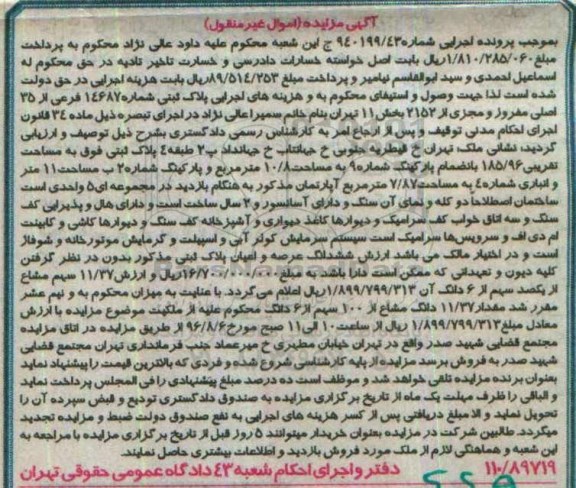 آگهی مزایده (اموال غیرمنقول)
بموجب پرونده اجرایی شماره ۹۴۰۱۹۹/۴۳ ج این شعبه محکوم علیه داود عالی نژاد محکوم به پرداخت
مبلغ ۱/۸۱۰/۲۸۵/۰۶۰ ریال بابت اصل خواسته خسارات دادرسی و خسارت تاخیر تادیه در حق محکوم له
اسماعیل احمدی و سید ابوالقاسم نیامیر و پرداخت مبلغ ۸۹/۵۱۴/۲۵۳ ریال بابت هزینه اجرایی در حق دولت
شده است لذا جهت وصول و استیفای محکوم به و هزینه های اجرایی پلاک ثبتی شماره ۱۴۶۸۷ فرعی از ۳۵
اصلی مفروز و مجزی از ۲۱۵۲ بخش ۱۱ تهران بنام خانم سمیرا عالی نژاد در اجرای تبصره ذیل ماده ۳۴ قانون
اجرای احکام مدنی توقیف و پس از ارجاع امر به کارشناس رسمی دادگستری بشرح ذیل توصیف و ارزیابی
گردید: نشانی ملک تهران خ قیطریه جنوبی خ جهانتاب خ جهانداد پ۲ طبقه ۴ پلاک ثبتی فوق به مساحت
تقریبی ۱۸۵/۹۶ بانضمام پارکینگ شماره ۹ به مساحت ۱۰/۸ مترمربع و پارکینگ شماره ۲ ب مساحت ۱۱ متر
و انباری شماره ٤ به مساحت ۷/۸۷ مترمربع آپارتمان مذکور به هنگام بازدید در مجموعه ای ۵ واحدی است
ساختمان اصطلاحاً دو کله و نمای آن سنگ و دارای آسانسور و ۲ سال ساخت است و دارای هال و پذیرایی کف
سنگ و سه اتاق خواب کف سرامیک و دیوارها کاغذ دیواری و آشپزخانه کف سنگ و دیوارها کاشی و کابینت
ام دی اف و سرویس‌ها سرامیک است سیستم سرمایش کولر آبی و اسپیلت و گرمایش موتورخانه و شوفاژ
است و در اختیار مالک می باشد ارزش ششدانگ عرصه و اعیان پلاک ثبتی مذکور بدون در نظر گرفتن
کلیه دیون و تعهداتی که ممکن است دارا باشد به مبلغ ۱۶/۷۰۰/۰۰۰/۰۰۰ ریال و ارزش ۱۱/۳۷ سهم مشاع
از یکصد سهم از ۶ دانگ آن ۱/۸۹۹/۷۹۹/۳۱۳ ریال اعلام می گردد. با عنایت به میزان محکوم به و نیم عشر
مقرر شد مقدار ۱۱/۳۷ دانگ مشاع از ۱۰۰ سهم از ۶ دانگ محکوم علیه از ملکیت موضوع مزایده با ارزش
معادل مبلغ ۱/۸۹۹/۷۹۹/۳۱۳ ریال از ساعت ۱۰ الی ۱۱ صبح مورخ ۹۶/۸/۶ از طریق مزایده در اتاق مزایده
مجتمع قضایی شهید صدر واقع در تهران خیابان مطهری خ میرعماد جنب فرمانداری تهران مجتمع قضایی
شهید صدر به فروش برسد مزایده از پایه کارشناسی شروع شده و فردی که بالاترین قیمت را پیشنهاد نماید
بعنوان برنده مزایده تلقی خواهد شد و موظف است ده درصد مبلغ پیشنهادی را فی المجلس پرداخت نماید
و الباقی را ظرف مهلت یک ماه از تاریخ برگزاری مزایده به صندوق دادگستری تودیع و قبض سپرده آن را
تحویل نماید و الا مبلغ دریافتی پس از کسر هزینه های اجرایی به نفع صندوق دولت ضبط و مزایده تجدید
میگردد. طالبین شرکت در مزایده بعنوان خریدار میتوانند ۵ روز قبل از تاریخ برگزاری مزایده با مراجعه به
این شعبه و هماهنگی لازم از ملک مورد فروش بازدید و اطلاعات بیشتری حاصل نمایند.
۱۱۰/۸۹۷۱۹ دفتر و اجرای احکام شعبه ۴۳ دادگاه عمومی حقوقی تهران